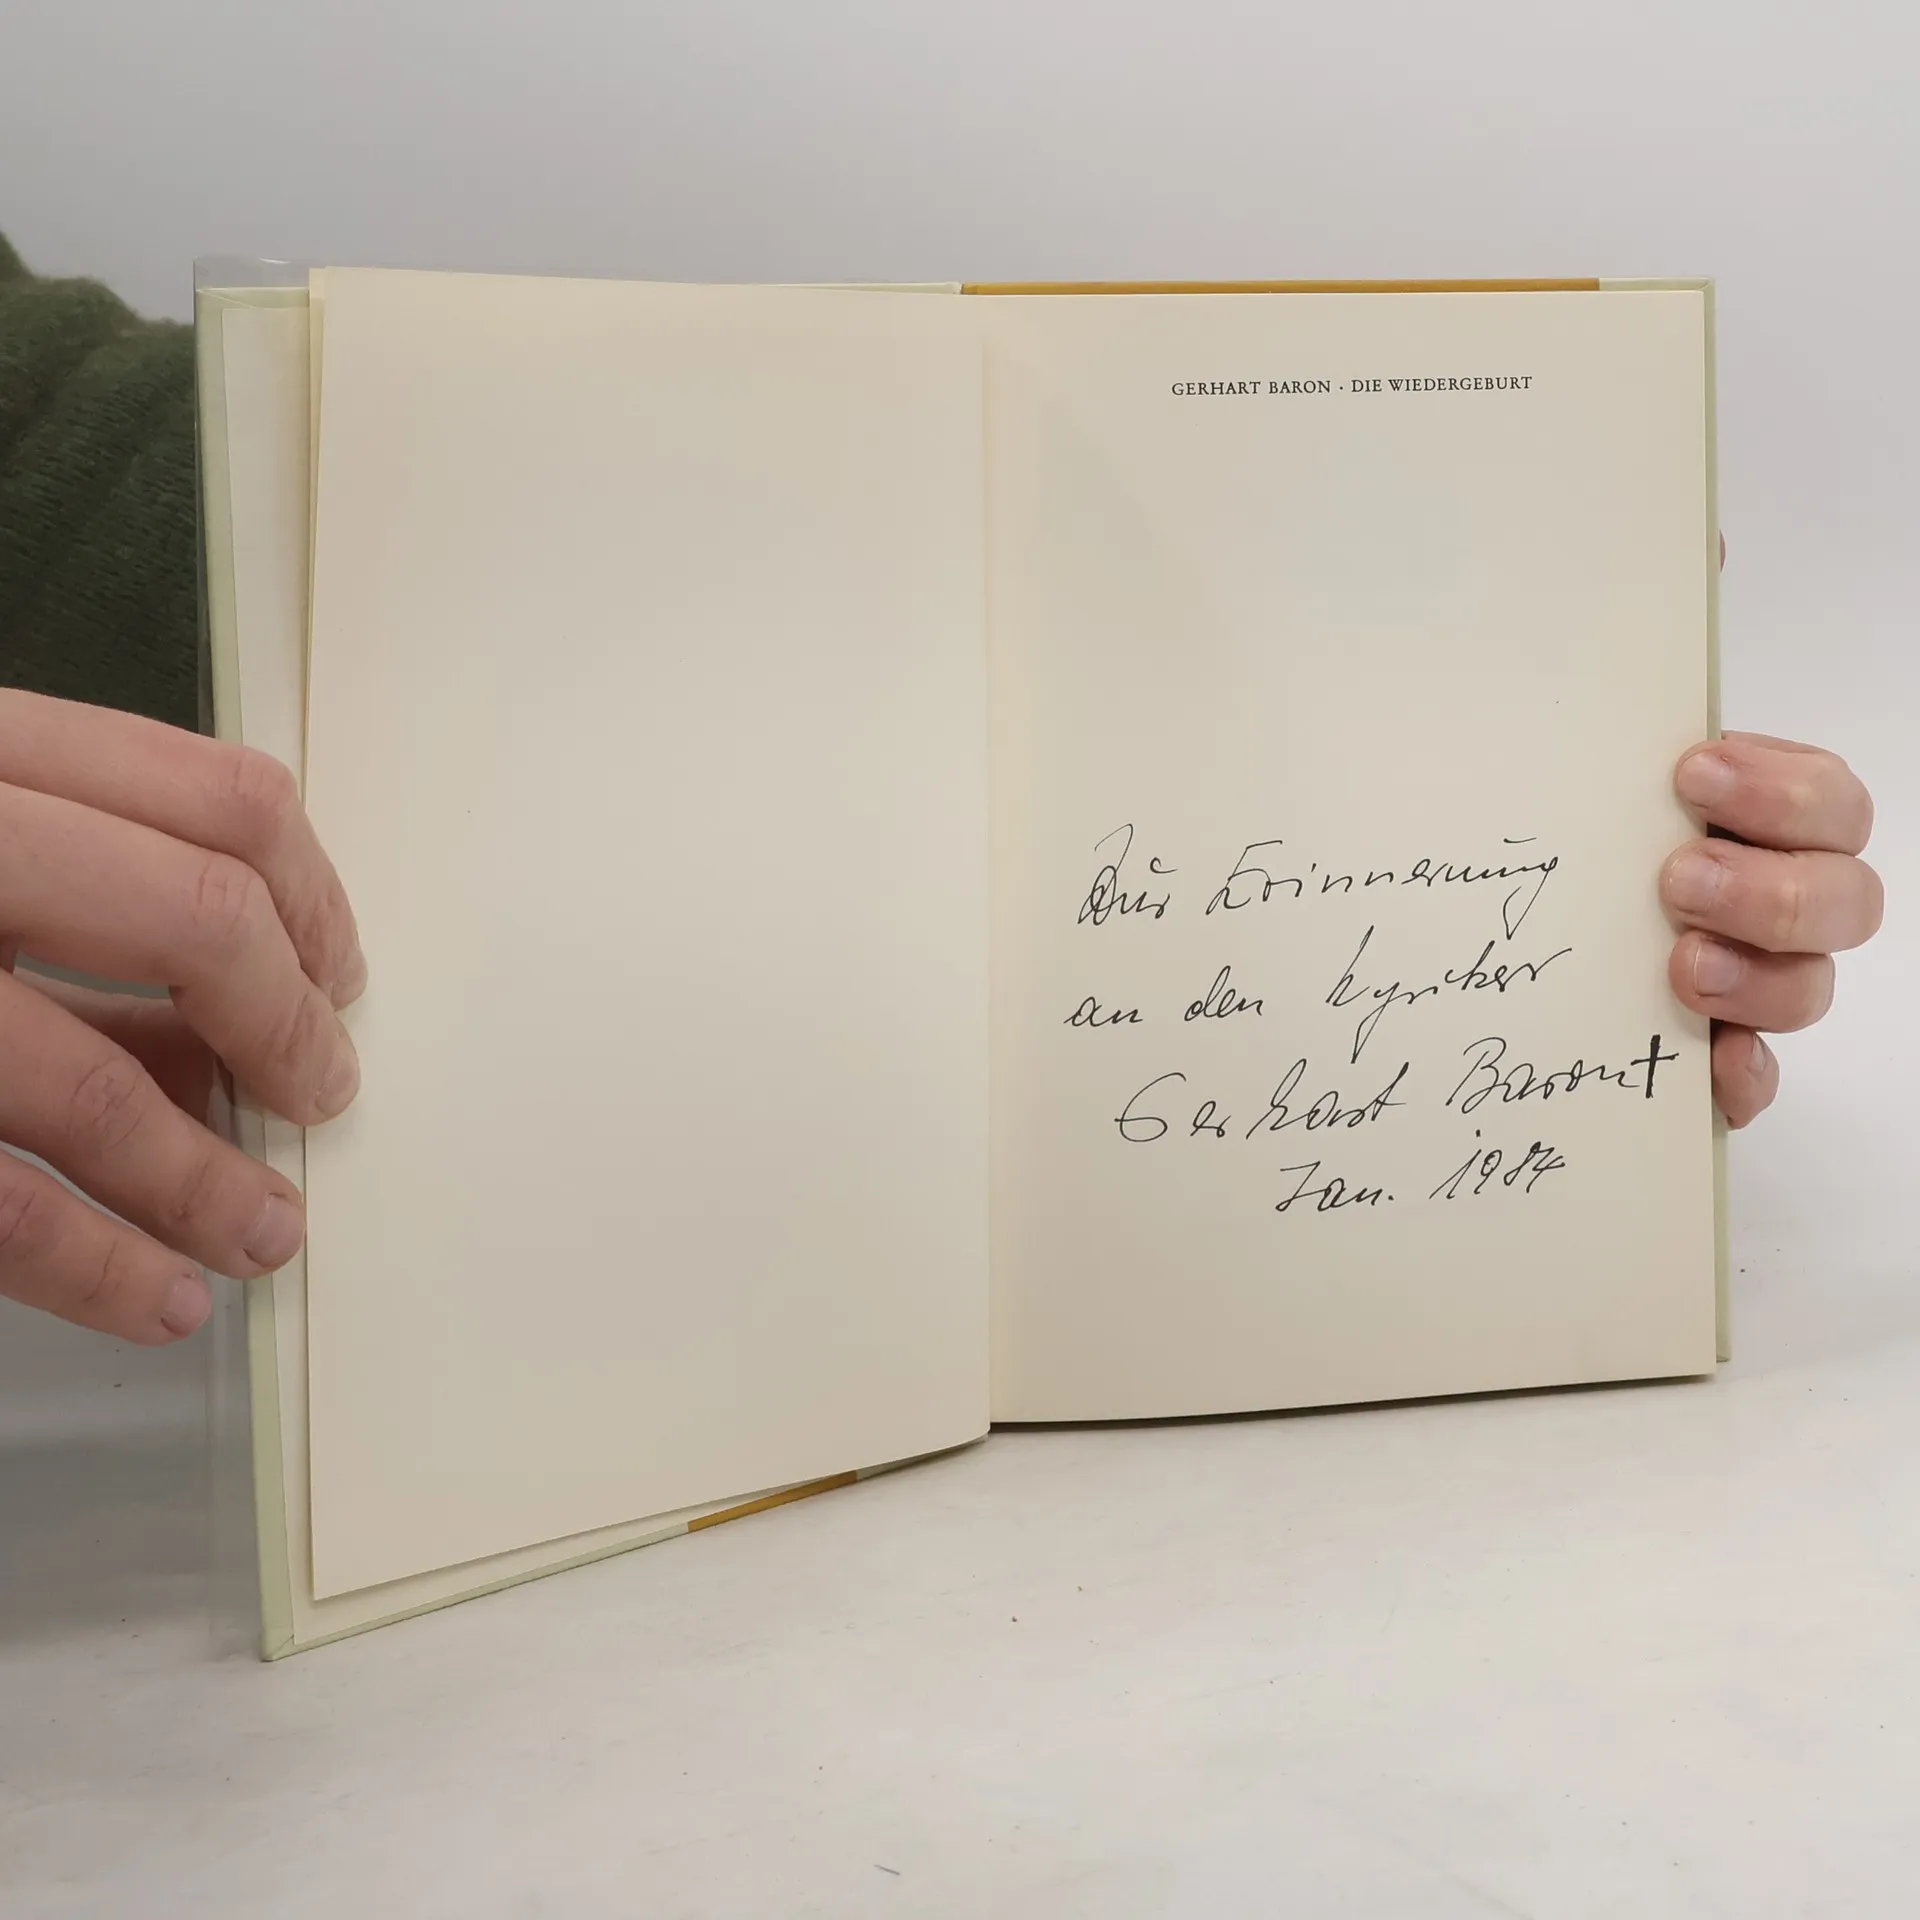 GERHART BARON · DIE WIEDERGEBURT
Zur Erinnerung
an den Lyriker
Gerhart Baron †
Jan. 1984